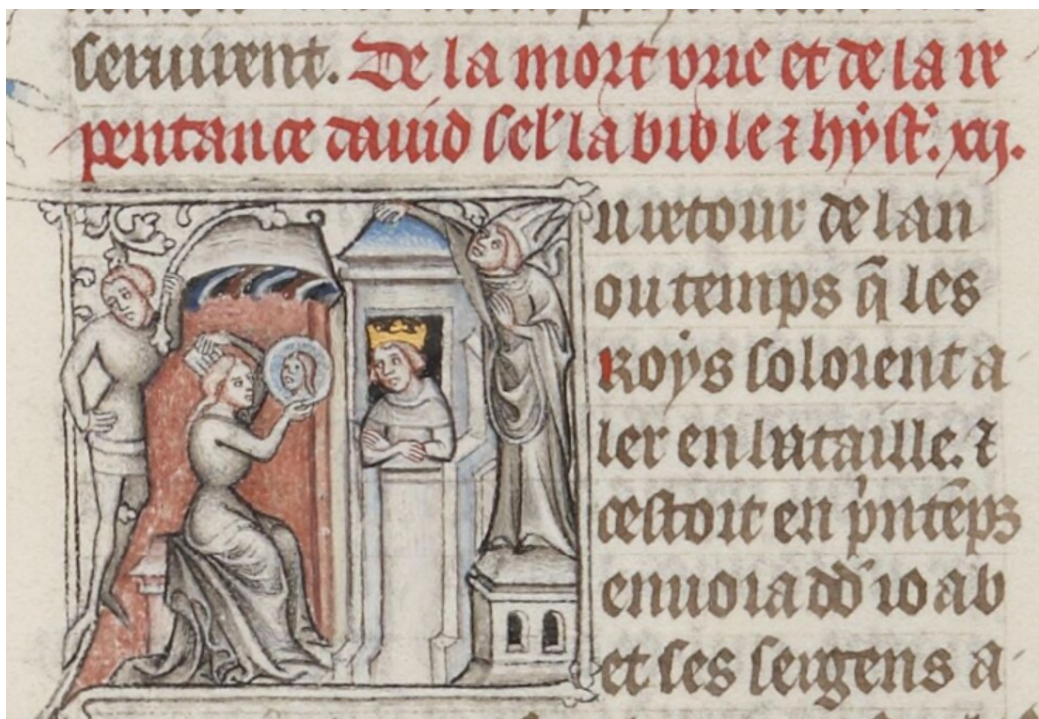 seruirent. De la mort vrie et de la re
pentance dauid sel' la bible ⁊ hÿst'. xij.
u retour de lan
ou temps q̃ les
Roÿs soloient a
ler en bataille. ⁊
cestoit en p̍ntẽps
enuoia dd̃ ioab
et ses sergens a